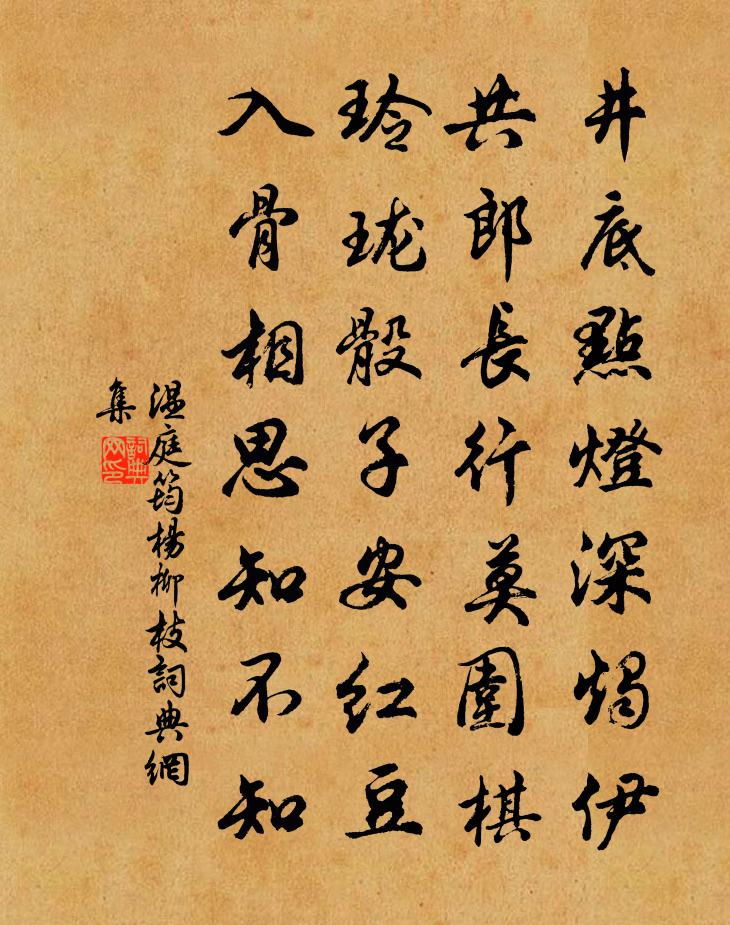 井底點燈深燭伊
共郎長行莫圍棋
玲瓏骰子安红豆
入骨相思知不知
温庭筠楊柳枝詞典網
集
詞典网印